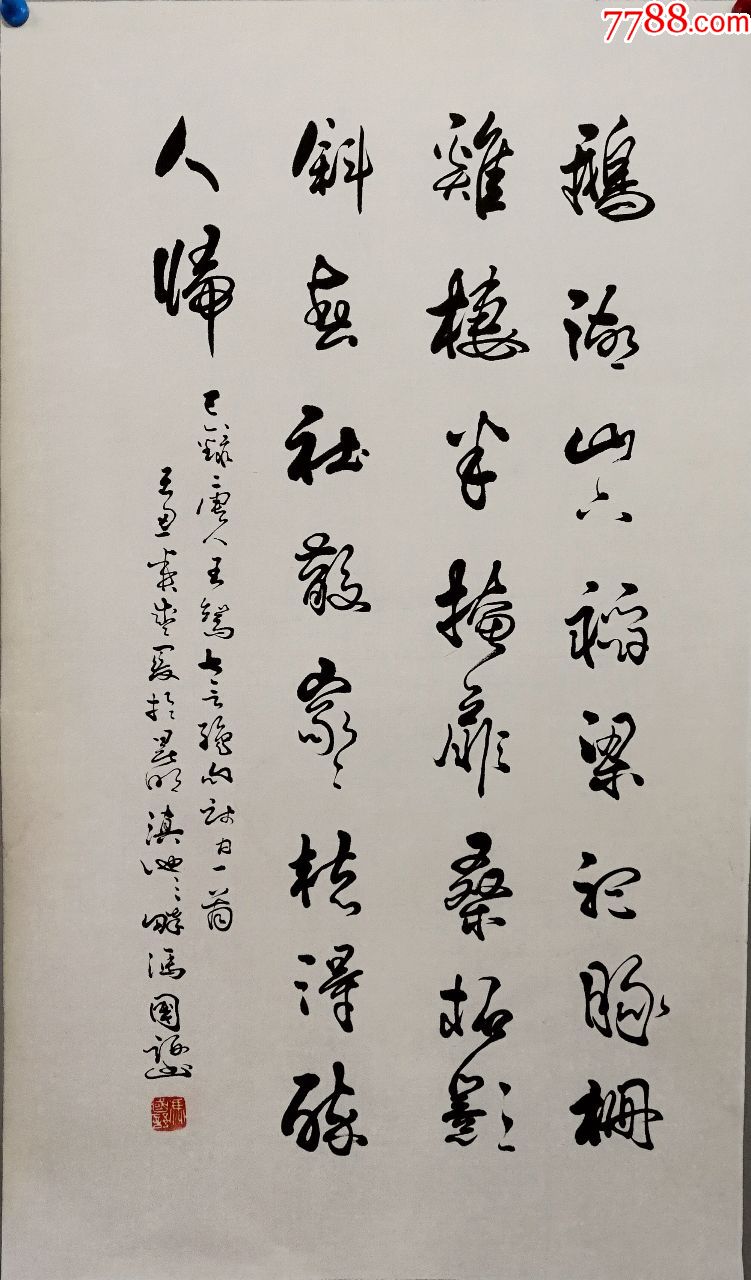 7788.com
鵝湖山下稻粱肥豚柵
雞棲半掩扉桑柘影
斜春社散家〻扶得醉
人歸
錄唐人王駕七言絕句社日一首
夏於昆明滇池之畔馮國